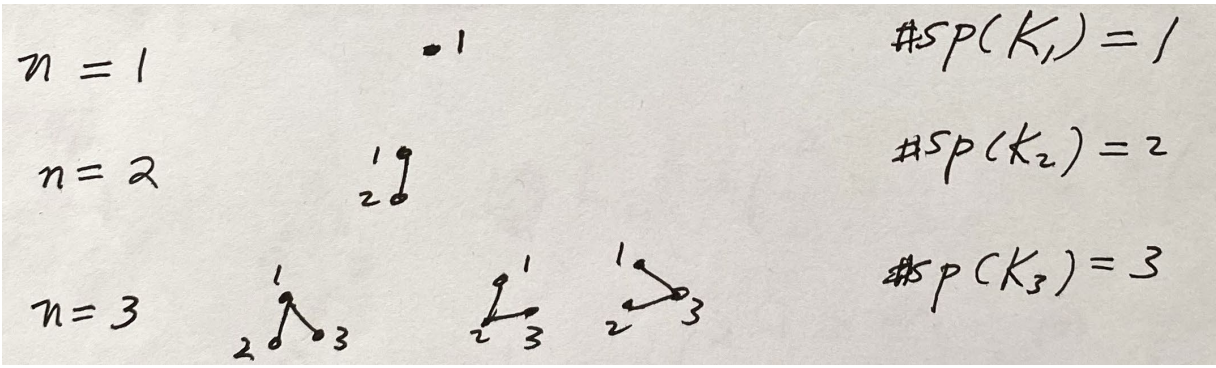 n = 1 1 #sp(K₁) = 1
n = 2 1 2 #sp(K₂) = 2
n = 3 1 2 3 1 2 3 1 2 3 #sp(K₃) = 3